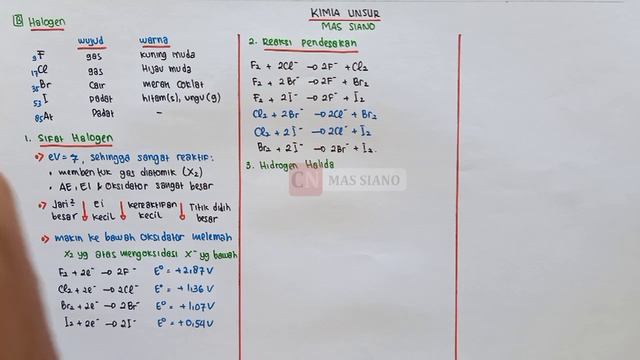 KIMIA UNSUR
MAS SIANO
B Halogen
wujud warna
9F gas kuning muda
17Cl gas Hijau muda
35Br cair merah coklat
53I padat hitam(s), ungu(g)
85At padat -
1. Sifat Halogen
eV = 7, sehingga sangat reaktif:
• membentuk gas diatomik (X2)
• AE, EI & oksidator sangat besar
Jari² besar ↓ ei kecil ↓ kereaktifan kecil ↓ Titik didih besar
makin ke bawah oksidator melemah
X2 yg atas mengoksidasi X⁻ yg bawah
F2 + 2e⁻ → 2F⁻ E° = +2,87 V
Cl2 + 2e⁻ → 2Cl⁻ E° = +1,36 V
Br2 + 2e⁻ → 2Br⁻ E° = +1,07 V
I2 + 2e⁻ → 2I⁻ E° = +0,54 V
2. Reaksi Pendesakan
F2 + 2Cl⁻ → 2F⁻ + Cl2
F2 + 2Br⁻ → 2F⁻ + Br2
F2 + 2I⁻ → 2F⁻ + I2
Cl2 + 2Br⁻ → 2Cl⁻ + Br2
Cl2 + 2I⁻ → 2Cl⁻ + I2
Br2 + 2I⁻ → 2Br⁻ + I2.
3. Hidrogen Halida
CN MAS SIANO